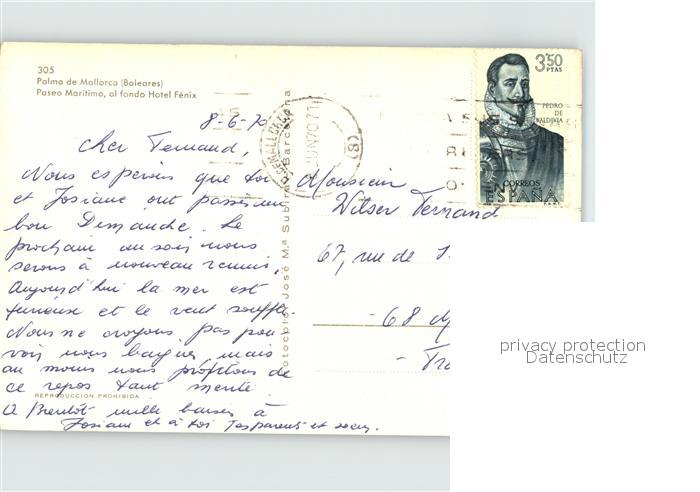 305
Palma de Mallorca (Baleares)
Paseo Marítimo, al fondo Hotel Fénix
8-6-70
Cher Fernand,
Nous espérons que toi
et Josiane ont passé un
bon Dimanche. Le
prochain au soir nous
serons à nouveau réunis,
Aujourd'hui la mer est
furieuse et le vent souffle.
Nous ne croyons pas pou
voir nous baigner mais
au moins nous profitons de
ce repos tant mérité.
REPRODUCCION PROHIBIDA
A Bientôt mille baisers à
Josiane et à toi Tes parents et soeur.
Fotocolor José Mª Subirá Barcelona
JUN 70
(8)
3'50
PTAS
PEDRO
DE
VALDIVIA
CORREOS
ESPAÑA
Monsieur
Wilser Fernand
67, rue de
68
privacy protection
Datenschutz